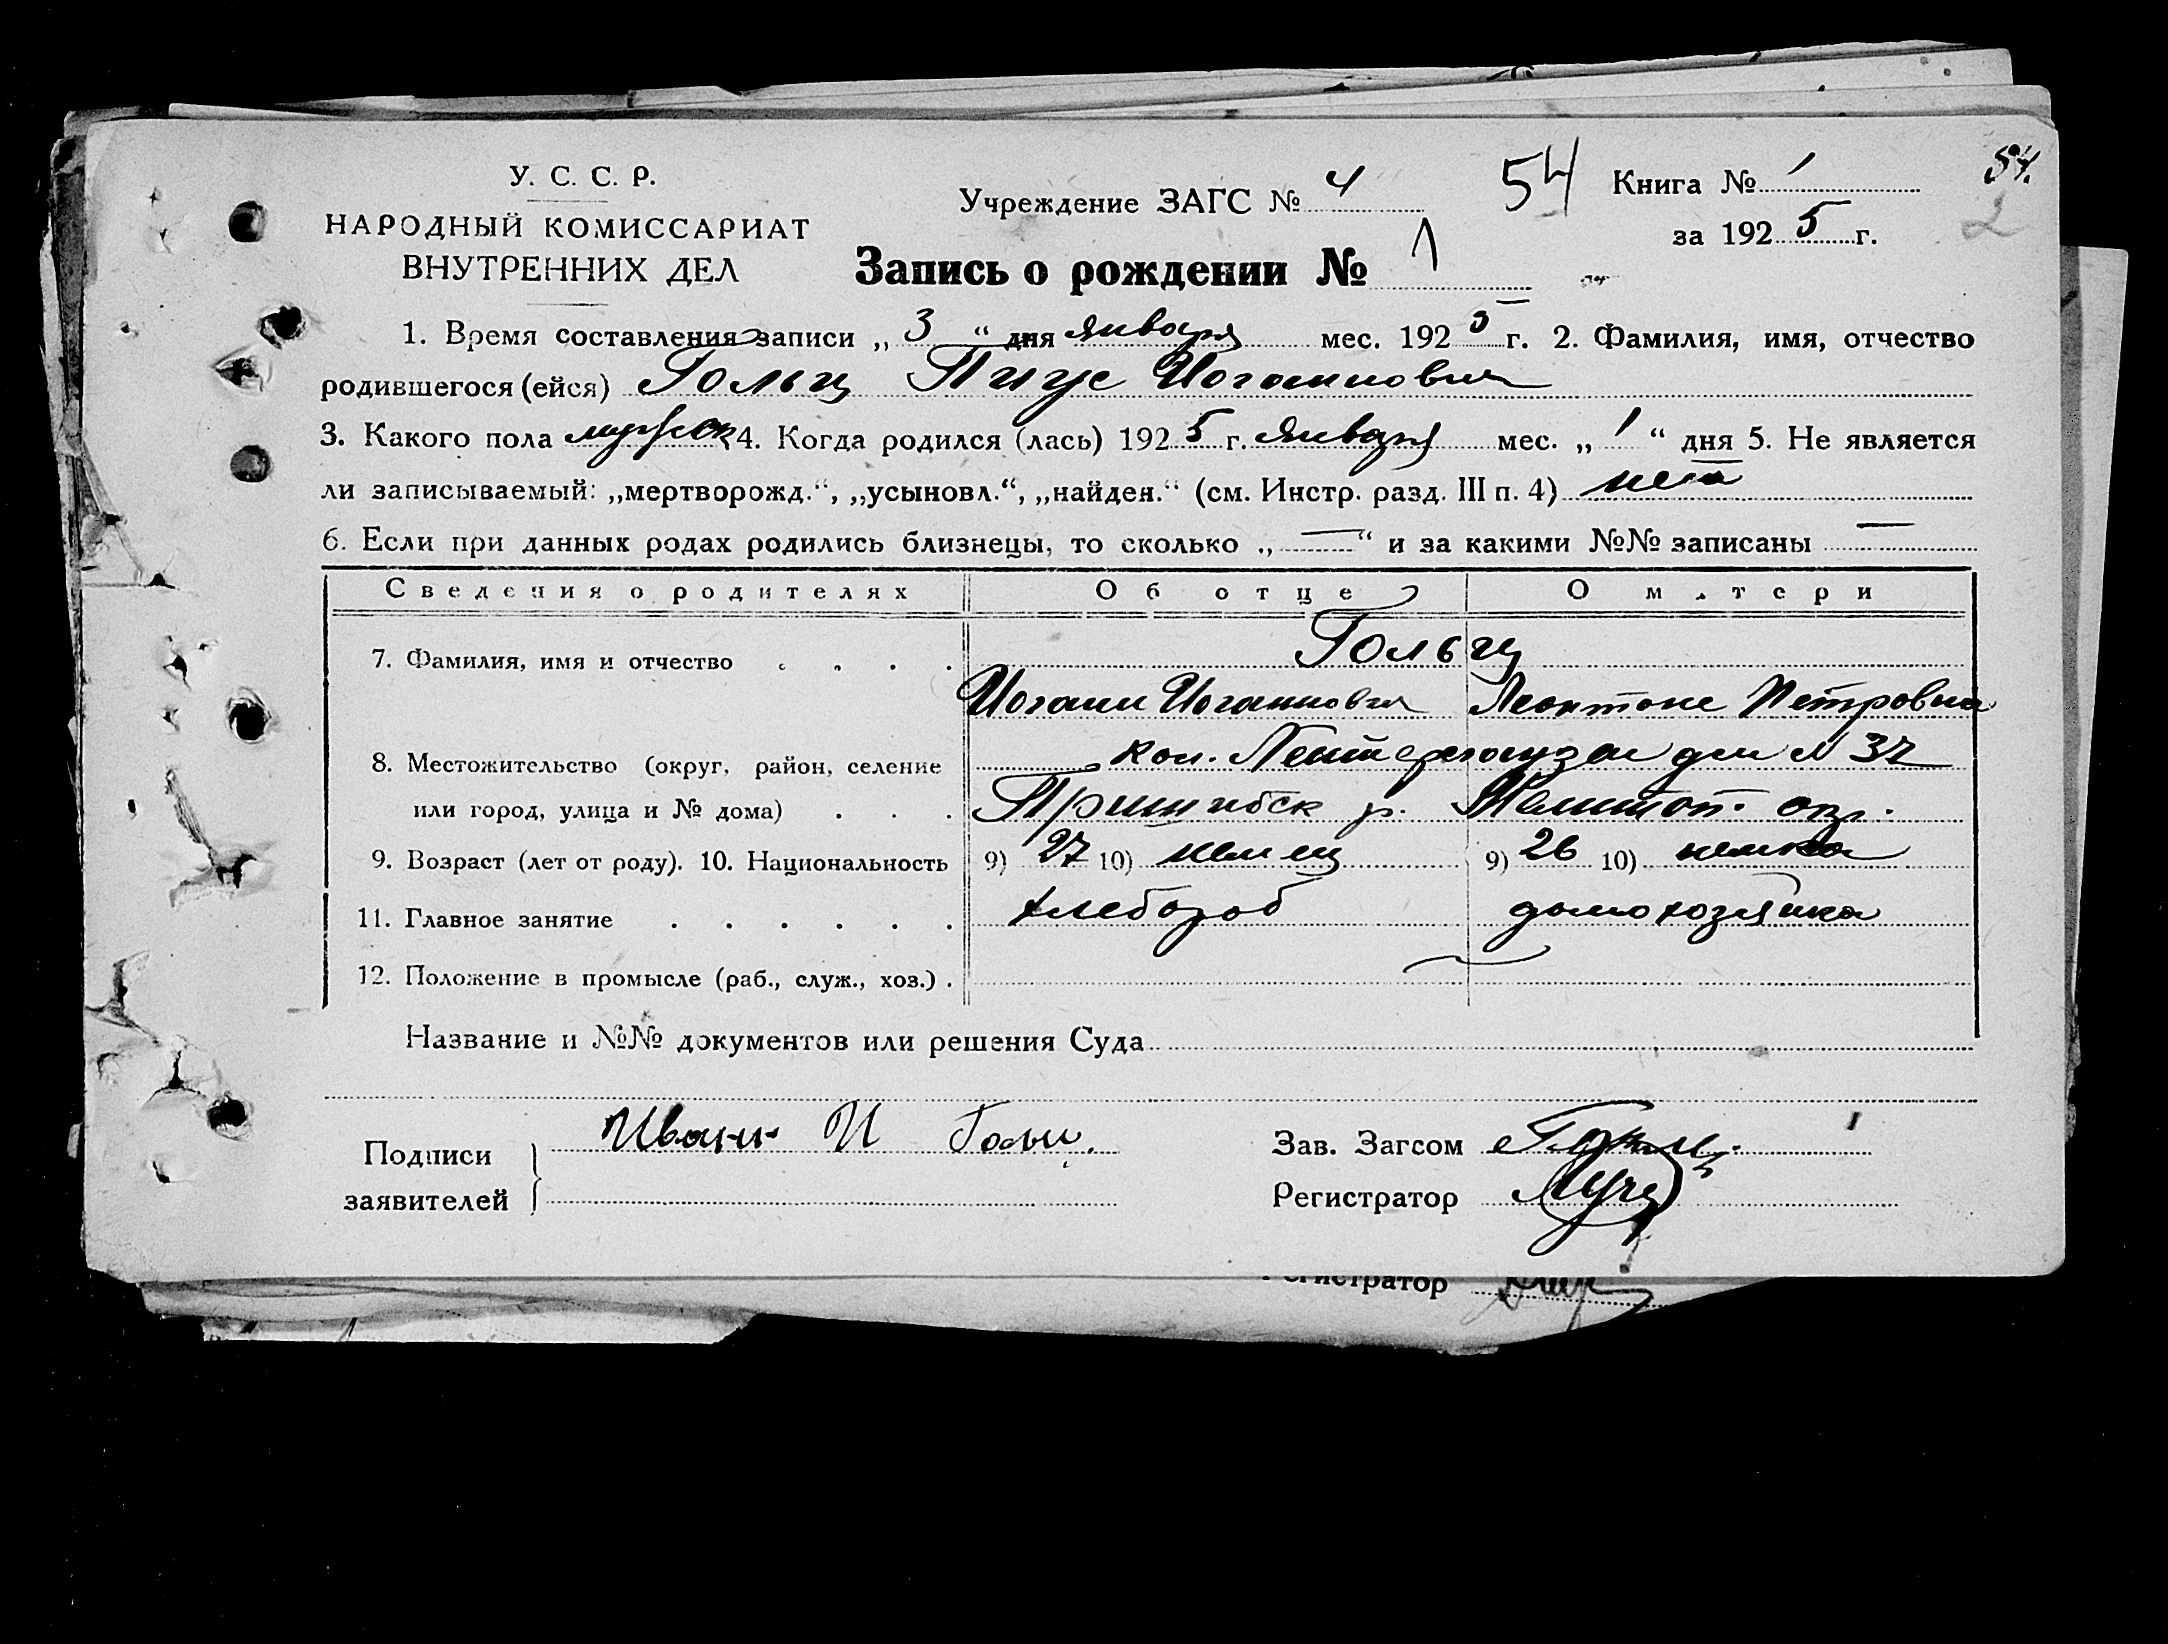 У. С. С. Р.
НАРОДНЫЙ КОМИССАРИАТ
ВНУТРЕННИХ ДЕЛ
Учреждение ЗАГС № 4
54
Книга № 1
за 1925 г.
54.
2
Запись о рождении № 1
1. Время составления записи „ 3 “ дня января мес. 1925 г. 2. Фамилия, имя, отчество
родившегося (ейся) Гольц Пиус Иоганнович
3. Какого пола мужск 4. Когда родился (лась) 1925 г. января мес. „ 1 “ дня 5. Не является
ли записываемый: „мертворожд.“, „усыновл.“, „найден.“ (см. Инстр. разд. III п. 4) нет
6. Если при данных родах родились близнецы, то сколько „ — “ и за какими №№ записаны —
Сведения о родителях Об отце О матери
7. Фамилия, имя и отчество . . . . Гольц
Иоганн Иоганнович Леонтоне Петровна
8. Местожительство (округ, район, селение кол. дом № 37
или город, улица и № дома) . . . Пришибск р. Мелитоп. окр.
9. Возраст (лет от роду). 10. Национальность 9) 27 10) немец 9) 26 10) немка
11. Главное занятие . . . . . . хлебороб домохозяйка
12. Положение в промысле (раб., служ., хоз.) . —
Название и №№ документов или решения Суда
Подписи
заявителей
Иван И Гольц.
Зав. Загсом
Регистратор
Регистратор